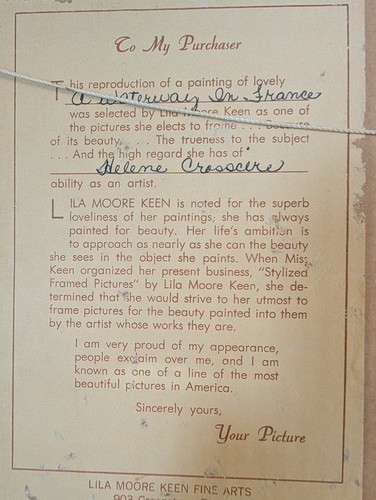 To My Purchaser
This reproduction of a painting of lovely
A Waterway In France
was selected by Lila Moore Keen as one of
the pictures she elects to frame . . . Because
of its beauty. . . . The trueness to the subject
. . . And the high regard she has of
Helene
ability as an artist.
LILA MOORE KEEN is noted for the superb
loveliness of her paintings; she has always
painted for beauty. Her life's ambition is
to approach as nearly as she can the beauty
she sees in the object she paints. When Miss
Keen organized her present business, "Stylized
Framed Pictures" by Lila Moore Keen, she de-
termined that she would strive to her utmost to
frame pictures for the beauty painted into them
by the artist whose works they are.
I am very proud of my appearance,
people exclaim over me, and I am
known as one of a line of the most
beautiful pictures in America.
Sincerely yours,
Your Picture
LILA MOORE KEEN FINE ARTS
903